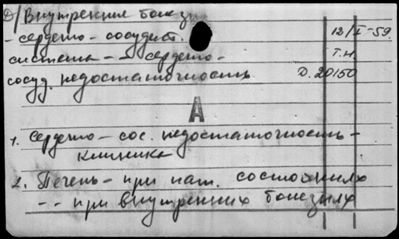 Внутренние болезни
- сердечно - сосудист. 12/I-59.
система - сердечно- Т.Н.
сосуд. недостаточность Д. 20150
А
1. Сердечно - сос. недостаточность -
клиника
2. Печень - при пат. состояниях
- " - при внутренних болезнях